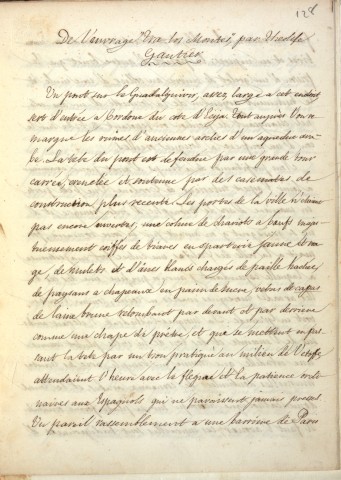 128
De l'ouvrage "Tra los Montes" par Theofile
Gautier
Un pont sur le Guadalquivir, assez large a cet endroit
sert d'entrée a Cordoue du coté d'Ecija. Tout auprès l'on re-
marque les ruines d'anciennes arches d'un aqueduc ara-
be. La tete du pont est defendue par une grande tour
carrée, crenelée et soutenue par des casemates de
construction plus recente. Les portes de la ville n'etaient
pas encore ouvertes; une cohue de chariots a bœufs majes-
tueusement coiffés de tiares en sparterie jaune et rou-
ge, de mulets et d'ânes blancs chargés de paille hachée,
de paysans a chapeaux en pain de sucre, vetus de capas
de laine brune retombant par devant et par derrière
comme une chape de prêtre, et que se mettent en pas-
sant la tete par un trou pratiqué au milieu de l'etoffe,
attendaient l'heure avec le flegme et la patience ordi-
naires aux Espagnols qui ne paraissent jamais pressés.
Un pareil rassemblement a une barrière de Paris